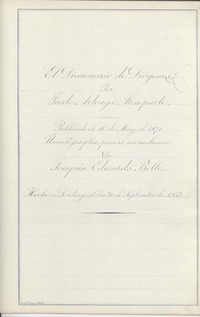 El Diccionario de Diógenes,
Por
Justo Arteaga Alemparte.
Publicado el 16 de Mayo de 1871.
Único Ejemplar para el uso exclusivo
De
Joaquín Edwards Bello.
Hecho en Santiago el día de Septiembre de